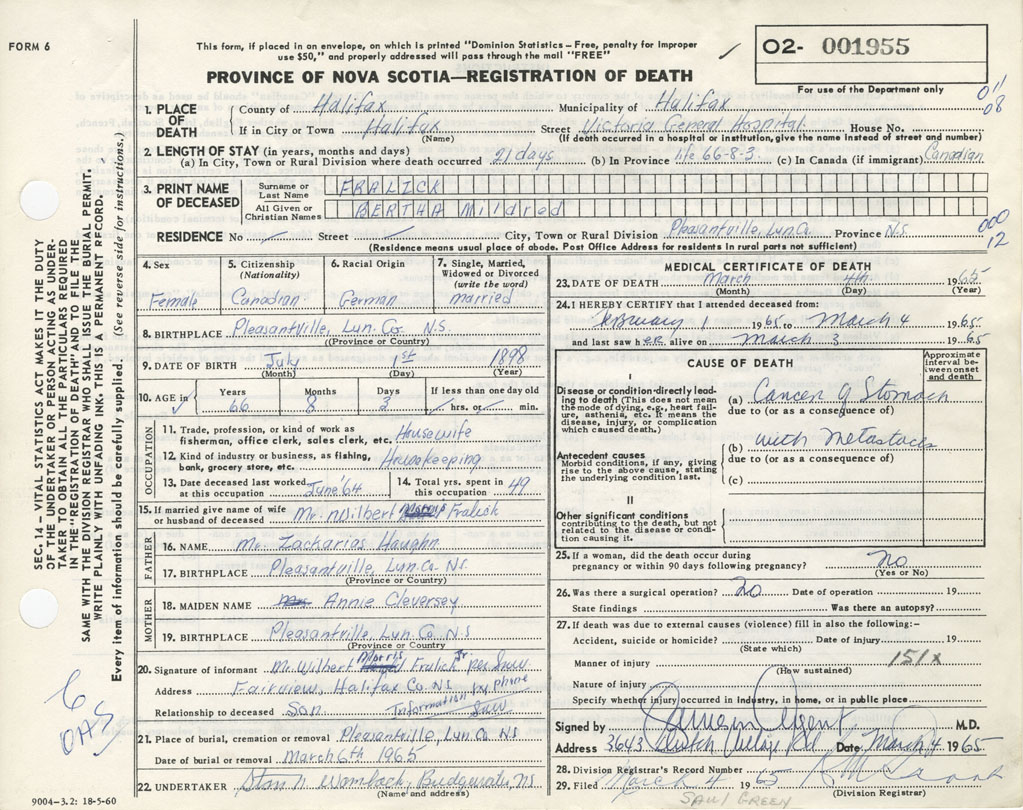 FORM 6
This form, if placed in an envelope, on which is printed "Dominion Statistics – Free, penalty for improper
use $50," and properly addressed will pass through the mail "FREE"
O2- 001955
PROVINCE OF NOVA SCOTIA—REGISTRATION OF DEATH
For use of the Department only
01
08
1. PLACE OF DEATH
County of Halifax Municipality of Halifax
If in City or Town Halifax Street Victoria General Hospital House No.
(Name) (If death occurred in a hospital or institution, give the name instead of street and number)
2. LENGTH OF STAY (in years, months and days)
(a) In City, Town or Rural Division where death occurred 21 days (b) In Province life 66-8-3. (c) In Canada (if immigrant) Canadian
3. PRINT NAME OF DECEASED
Surname or Last Name FRALICK
All Given or Christian Names BERTHA Mildred
RESIDENCE No Street City, Town or Rural Division Pleasantville, Lun. Co. Province N.S.
(Residence means usual place of abode. Post Office Address for residents in rural parts not sufficient)
000
12
4. Sex
Female
5. Citizenship (Nationality)
Canadian
6. Racial Origin
German
7. Single, Married, Widowed or Divorced (write the word)
married
8. BIRTHPLACE Pleasantville, Lun. Co. N.S.
(Province or Country)
9. DATE OF BIRTH July 1st 1898
(Month) (Day) (Year)
10. AGE in Years Months Days If less than one day old
66 8 3 hrs. or min.
OCCUPATION
11. Trade, profession, or kind of work as fisherman, office clerk, sales clerk, etc. Housewife
12. Kind of industry or business, as fishing, bank, grocery store, etc. Housekeeping
13. Date deceased last worked at this occupation June '64
14. Total yrs. spent in this occupation 49
15. If married give name of wife or husband of deceased Mr. Wilbert Morris Fralick
FATHER
16. NAME Mr. Zackarias Haughn
17. BIRTHPLACE Pleasantville Lun. Co. N.S.
(Province or Country)
MOTHER
18. MAIDEN NAME Annie Cleversey
19. BIRTHPLACE Pleasantville, Lun. Co. N.S
(Province or Country)
20. Signature of informant Mr. Wilbert Morris Fralick Jr. per SNW
Address Fairview, Halifax Co. N.S.
Relationship to deceased Son Information by phone SNW
21. Place of burial, cremation or removal Pleasantville, Lun. Co. N.S
Date of burial or removal March 6th 1965
22. UNDERTAKER Stan N Wamback, Bridgewater, NS
(Name and address)
MEDICAL CERTIFICATE OF DEATH
23. DATE OF DEATH March 4th 1965
(Month) (Day) (Year)
24. I HEREBY CERTIFY that I attended deceased from:
February 1 1965 to March 4 1965
and last saw her alive on March 3 1965
CAUSE OF DEATH
Approximate interval between onset and death
I
Disease or condition directly leading to death (This does not mean the mode of dying, e.g., heart failure, asthenia, etc. It means the disease, injury, or complication which caused death.)
(a) Cancer of Stomach
due to (or as a consequence of)
Antecedent causes
Morbid conditions, if any, giving rise to the above cause, stating the underlying condition last.
(b) with Metastases
due to (or as a consequence of)
(c)
II
Other significant conditions
contributing to the death, but not related to the disease or condition causing it.
25. If a woman, did the death occur during pregnancy or within 90 days following pregnancy? No
(Yes or No)
26. Was there a surgical operation? No Date of operation 19
State findings Was there an autopsy?
27. If death was due to external causes (violence) fill in also the following:—
Accident, suicide or homicide? Date of injury 19
(State which)
Manner of injury 151X
(How sustained)
Nature of injury
Specify whether injury occurred in industry, in home, or in public place
Signed by M.D.
Address 3643 Dutch Village Rd Date March 4 1965
28. Division Registrar's Record Number
29. Filed March 4 1965
(Division Registrar)
SAUL GREEN
SEC. 14 – VITAL STATISTICS ACT MAKES IT THE DUTY
OF THE UNDERTAKER OR PERSON ACTING AS UNDER-
TAKER TO OBTAIN ALL THE PARTICULARS REQUIRED
IN THE "REGISTRATION OF DEATH" AND TO FILE THE
SAME WITH THE DIVISION REGISTRAR WHO SHALL ISSUE THE BURIAL PERMIT.
WRITE PLAINLY WITH UNFADING INK. THIS IS A PERMANENT RECORD.
Every item of information should be carefully supplied. (See reverse side for instructions.)
6
OAS
9004–3.2: 18-5-60